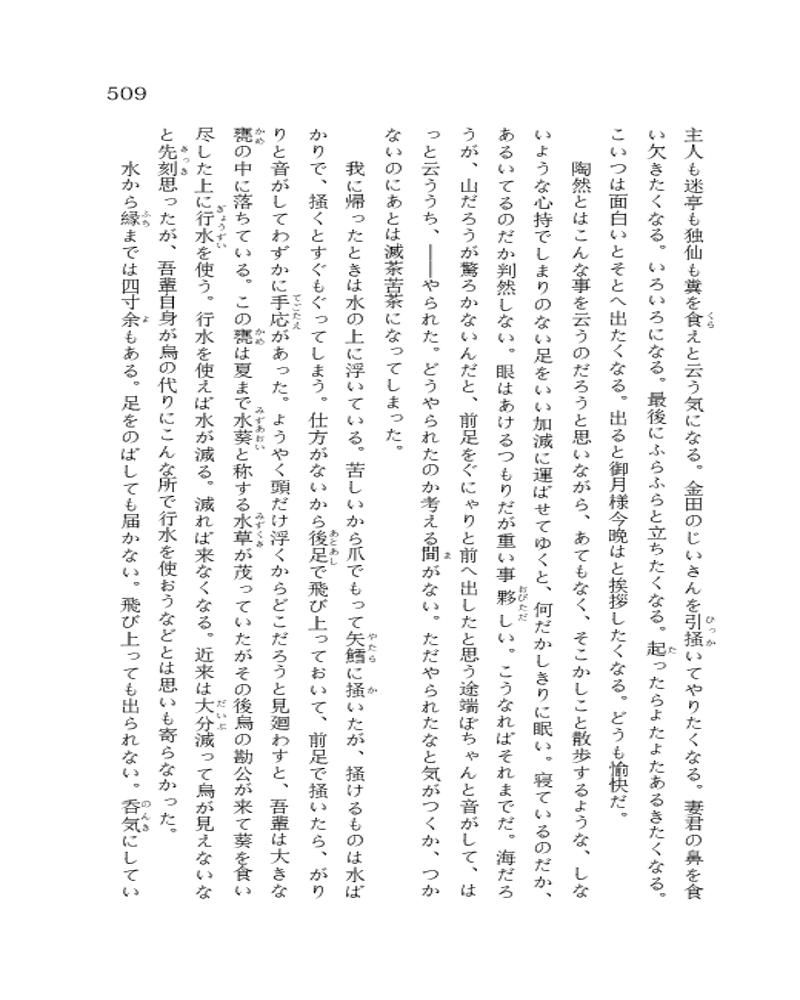 509
主人も迷亭も独仙も糞を食（くら）えと云う気になる。金田のじいさんを引掻（ひっか）いてやりたくなる。妻君の鼻を食
い欠きたくなる。いろいろになる。最後にふらふらと立ちたくなる。起（た）ったらよたよたあるきたくなる。
こいつは面白いとそとへ出たくなる。出ると御月様今晩はと挨拶したくなる。どうも愉快だ。
　陶然とはこんな事を云うのだろうと思いながら、あてもなく、そこかしこと散歩するような、しな
いような心持でしまりのない足をいい加減に運ばせてゆくと、何だかしきりに眠い。寝ているのだか、
あるいてるのだか判然しない。眼はあけるつもりだが重い事夥（おびただ）しい。こうなればそれまでだ。海だろ
うが、山だろうが驚ろかないんだと、前足をぐにゃりと前へ出したと思う途端ぼちゃんと音がして、は
っと云ううち、――やられた。どうやられたのか考える間（ま）がない。ただやられたなと気がつくか、つか
ないのにあとは滅茶苦茶になってしまった。
　我に帰ったときは水の上に浮いている。苦しいから爪でもって矢鱈（やたら）に掻（か）いたが、掻けるものは水ば
かりで、掻くとすぐもぐってしまう。仕方がないから後足（あとあし）で飛び上っておいて、前足で掻いたら、がり
りと音がしてわずかに手応（てごたえ）があった。ようやく頭だけ浮くからどこだろうと見廻わすと、吾輩は大きな
甕（かめ）の中に落ちている。この甕（かめ）は夏まで水葵（みずあおい）と称する水草（みずくさ）が茂っていたがその後烏の勘公が来て葵を食い
尽した上に行水（ぎょうずい）を使う。行水を使えば水が減る。減れば来なくなる。近来は大分（だいぶ）減って烏が見えないな
と先刻（さっき）思ったが、吾輩自身が烏の代りにこんな所で行水を使おうなどとは思いも寄らなかった。
　水から縁（ふち）までは四寸余（よ）もある。足をのばしても届かない。飛び上っても出られない。呑気（のんき）にしてい